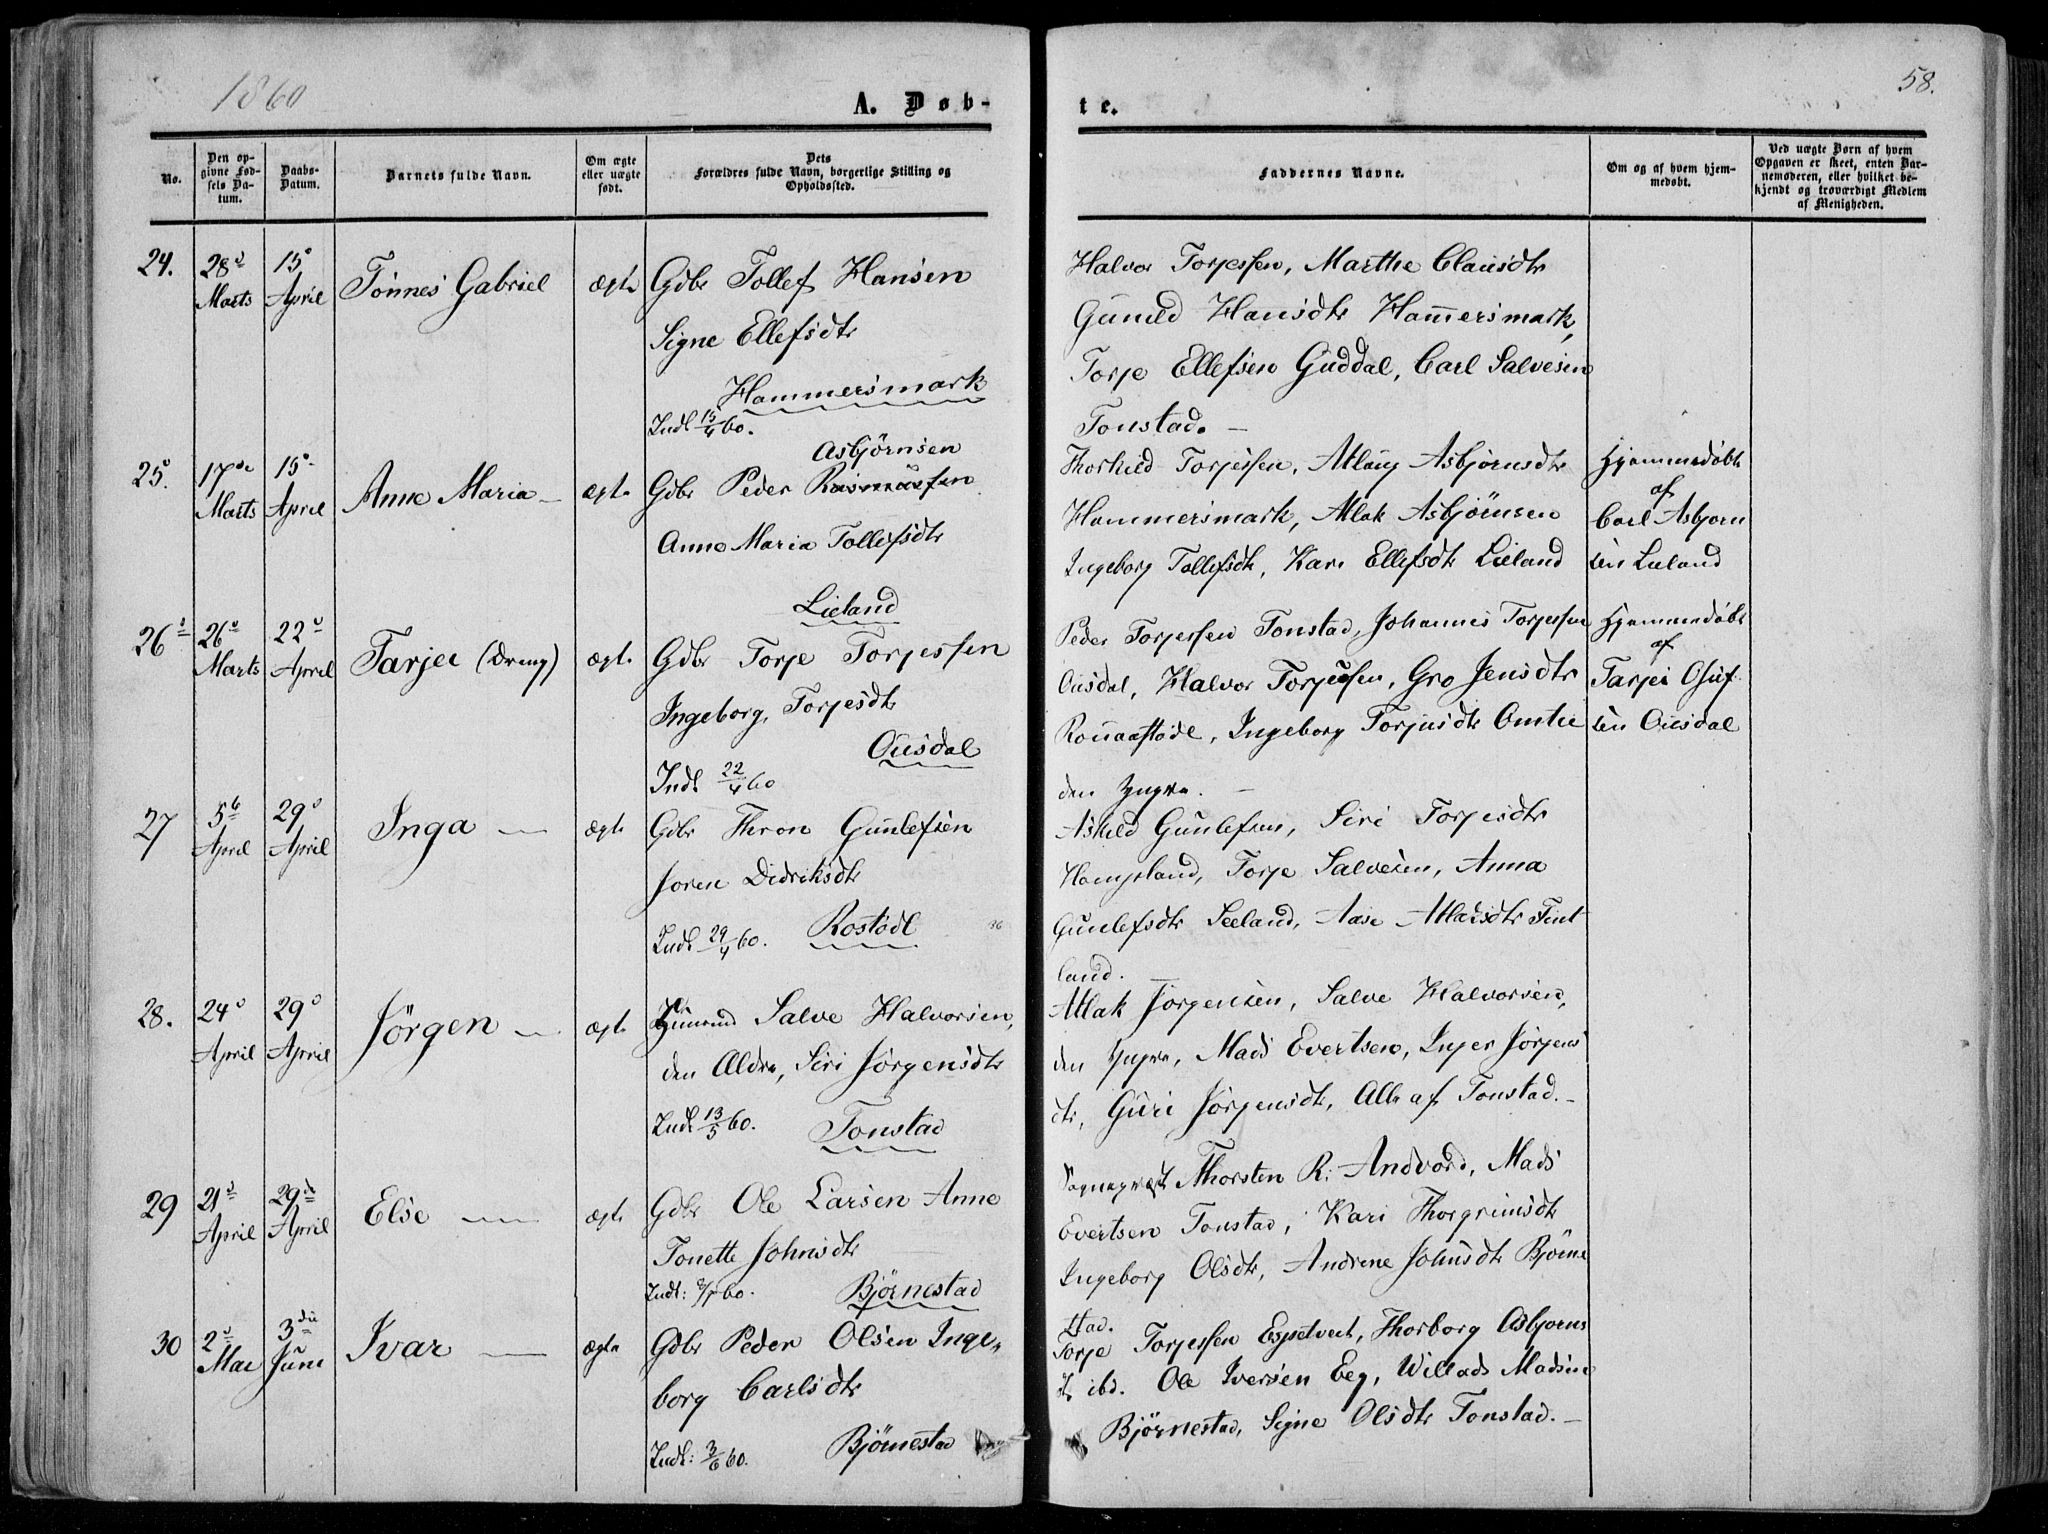 1860
58.
A. Døb-
te.
No.
Den op-
givne Fød-
sels Da-
tum.
Daabs-
Datum.
Barnets fulde Navn.
Om ægte
eller uægte
født.
Dets
Forældres fulde Navn, borgerlige Stilling og
Opholdssted.
Faddernes Navne.
Om og af hvem hjem-
medøbt.
Ved uægte Børn af hvem
Opgaven er skeet, enten Bar-
nemoderen, eller hvilket be-
kjendt og troværdigt Medlem
af Menigheden.
24. 28 Marts 15 April Tönnes Gabriel ægte Gdbr Tollef Hansen
Signe Ellefsdtr
Hammersmark
Indl 15/4 60.
Halvor Torjessen, Marthe Clausdtr
Guneld Hansdtr Hammersmark,
Torje Ellefsen Guddal, Carl Salvesen
Tonstad. —
25. 17de Marts 15 April Anne Maria — ægte Gdbr Peder Rasmussen
Asbjørnsen
Anne Maria Tollefsdtr
Lieland
Thorkild Torjessen, Atlaug Asbjørnsdtr
Hammersmark, Atlak Asbjörnsen
Ingeborg Tollefsdtr, Kari Ellefsdtr Lieland
Hjemmedøbt
af
Carl Asbjørn
sen Lieland
26 26 Marts 22 April Tarjei (Dreng) ægte Gdbr Torje Torjessen
Ingeborg Torjesdtr
Ousdal
Indl 22/4 60
Peder Torjessen Tonstad, Johannes Torjessen
Ousdal, Halvor Torjessen, Gro Jensdtr
Ingeborg Torjusdtr Omlie
den Yngre. —
Hjemmedøbt
af
Tarjei
sen Ousdal
27 5 April 29 April Inga — ægte Gdbr Thron Gunlefsen
Joren Didriksdtr
Indl 29/4 60. Rostödl
Askild Gunlefsen, Siri Torjesdtr
Torje Salvesen, Anna
Gunlefsdtr Seeland, Aase Atlaksdtr Fint
land. —
28. 24 April 29 April Jörgen — ægte Salve Halvorsen,
den Ældre, Siri Jörgensdtr
Indl 13/5 60. Tonstad
Atlak Jörgensen, Salve Halvorsen,
den Yngre, Mads Evertsen, Inger Jörgens
dtr, Guri Jörgensdtr, Alle af Tonstad. —
29 21 April 29de April Else — ægte Gdbr Ole Larsen Anne
Tonette Johnsdtr
Indl: 60. Bjørnestad
Sognepræst Thorsten R: Andvord, Mads
Evertsen Tonstad, Kari Thorgrimsdtr
Ingeborg Olsdtr, Andrene Johnsdtr Bjørne
stad.
30 2 Mai 3die Juni Ivar — ægte Gdbr Peder Olsen Inge-
borg Carlsdtr
Indl: 3/6 60. Bjørnestad
Torje Torjessen Espetvedt, Thorborg Asbjørns
dtr ibd. Ole Iversen Eeg, Willads Madsen
Bjørnestad, Signe Olsdtr Tonstad. —